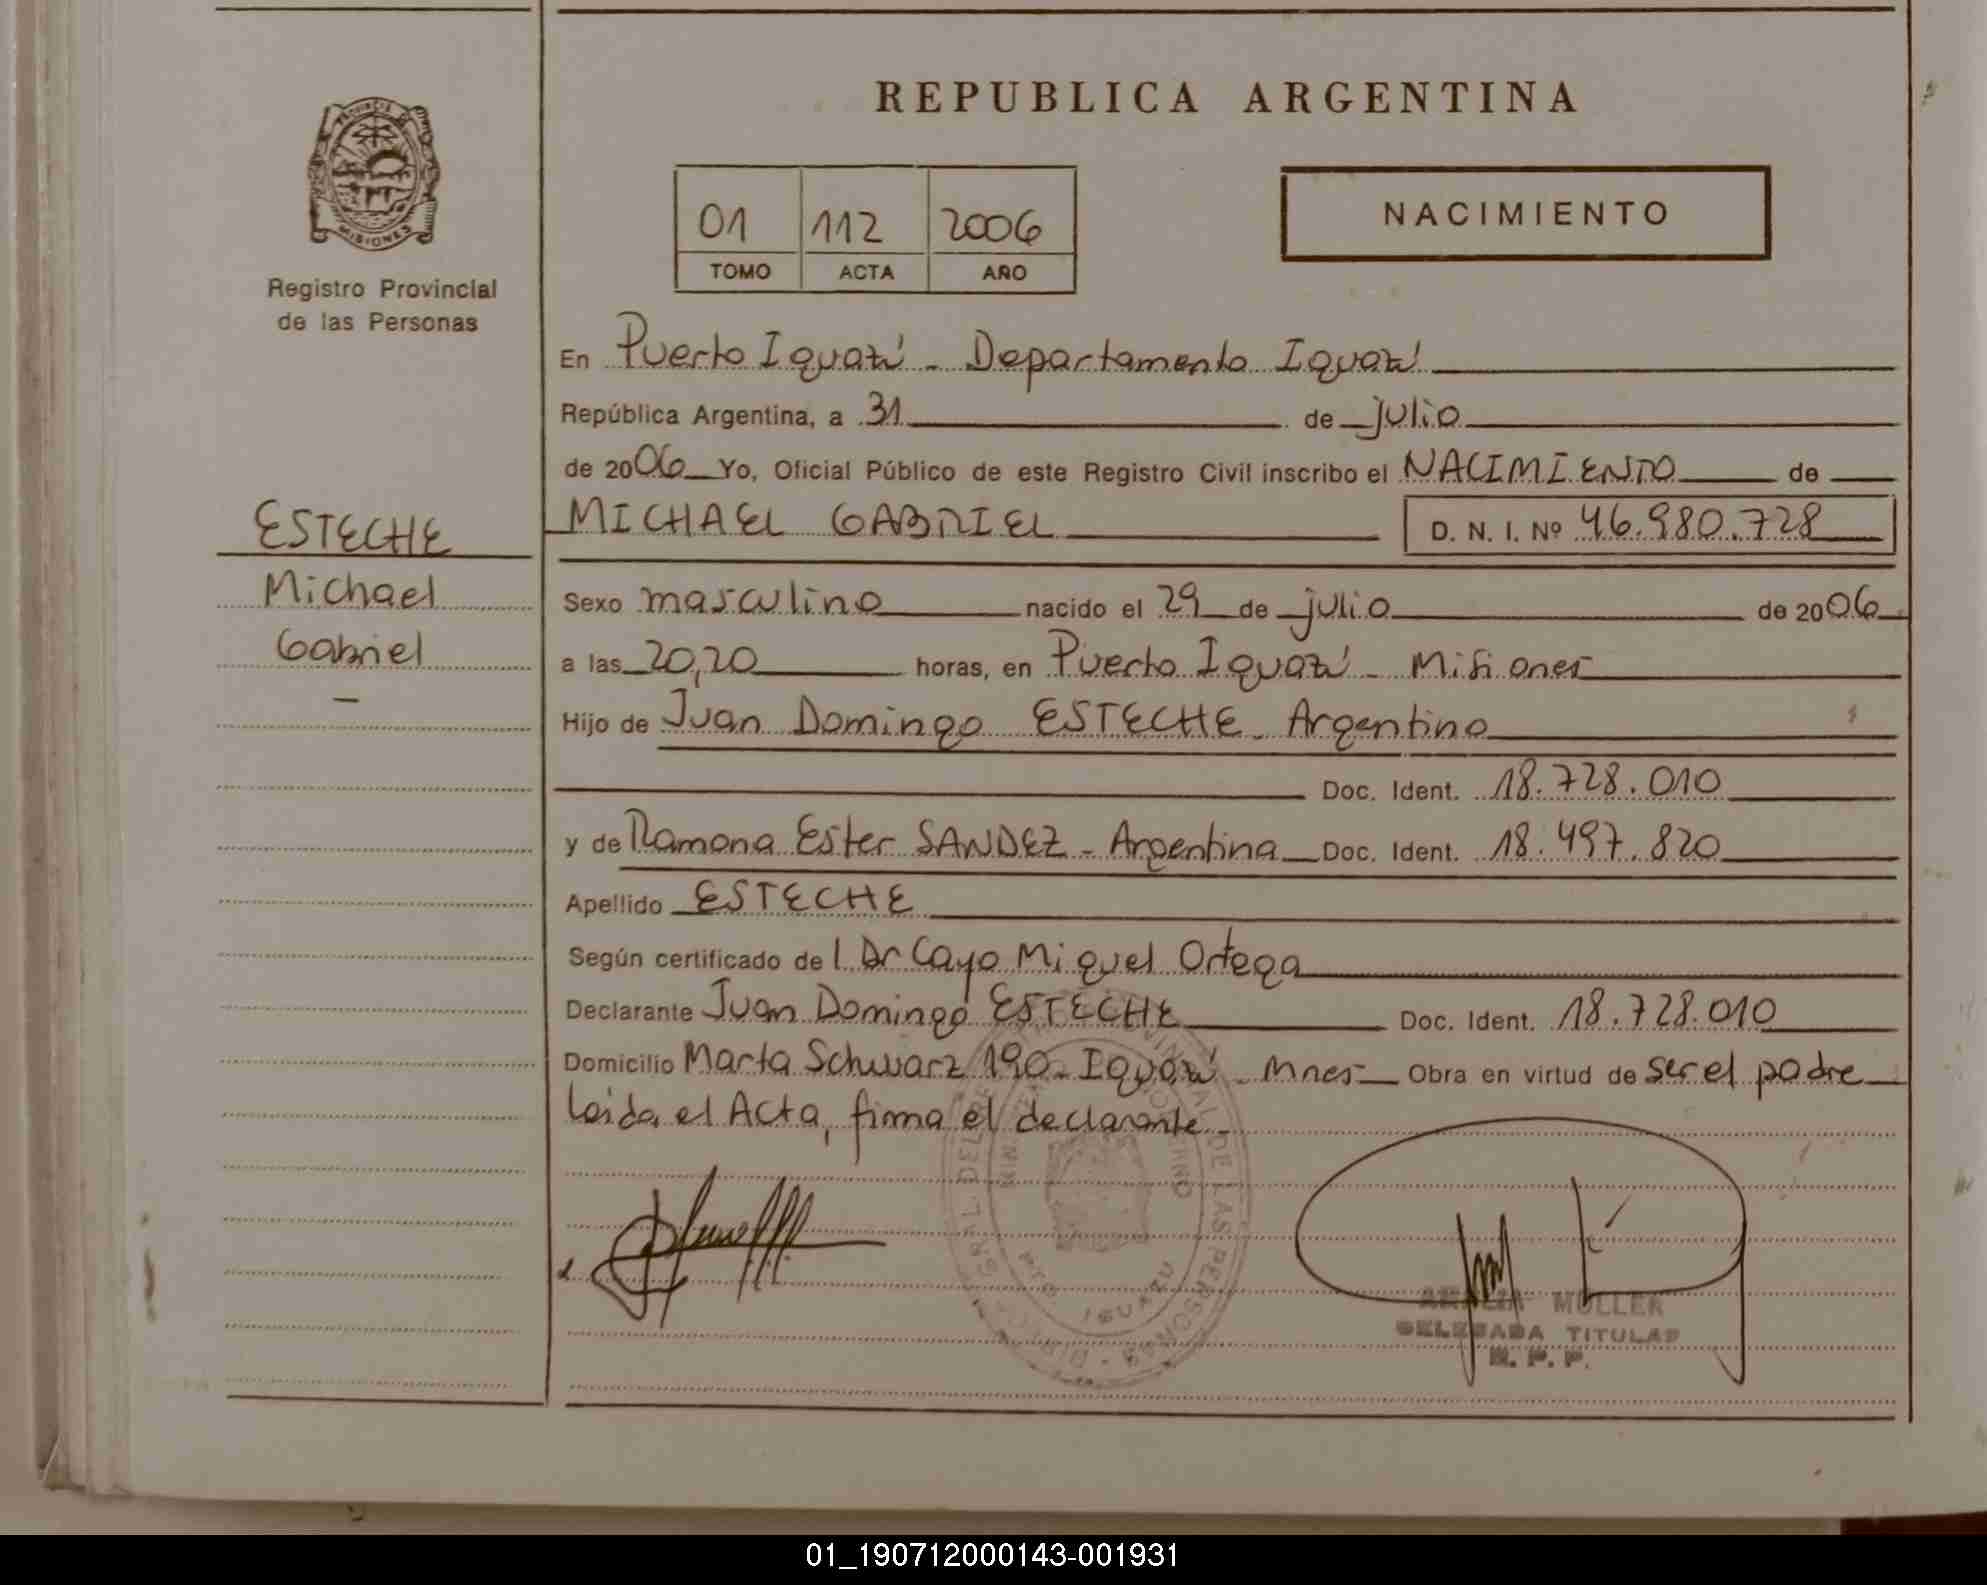 REPUBLICA ARGENTINA
PROVINCIA DE
MISIONES
Registro Provincial
de las Personas
01 112 2006
TOMO ACTA AÑO
NACIMIENTO
En Puerto Iguazú - Departamento Iguazú
República Argentina, a 31 de julio
de 2006 Yo, Oficial Público de este Registro Civil inscribo el NACIMIENTO de
MICHAEL GABRIEL D. N. I. Nº 46.980.728
ESTECHE
Michael
Gabriel
Sexo masculino nacido el 29 de julio de 2006
a las 20,20 horas, en Puerto Iguazú - Misiones
Hijo de Juan Domingo ESTECHE - Argentino
Doc. Ident. 18.728.010
y de Ramona Ester SANDEZ - Argentina Doc. Ident. 18.497.820
Apellido ESTECHE
Según certificado del Dr Cayo Miguel Ortega
Declarante Juan Domingo ESTECHE Doc. Ident. 18.728.010
Domicilio Marta Schwarz 190 - Iguazú - Mnes - Obra en virtud de ser el padre
Leida el Acta, firma el declarante -
DE LAS PERSONAS
PTO IGUAZU
MULLER
DELEGADA TITULAR
R. P. P.
01_190712000143-001931